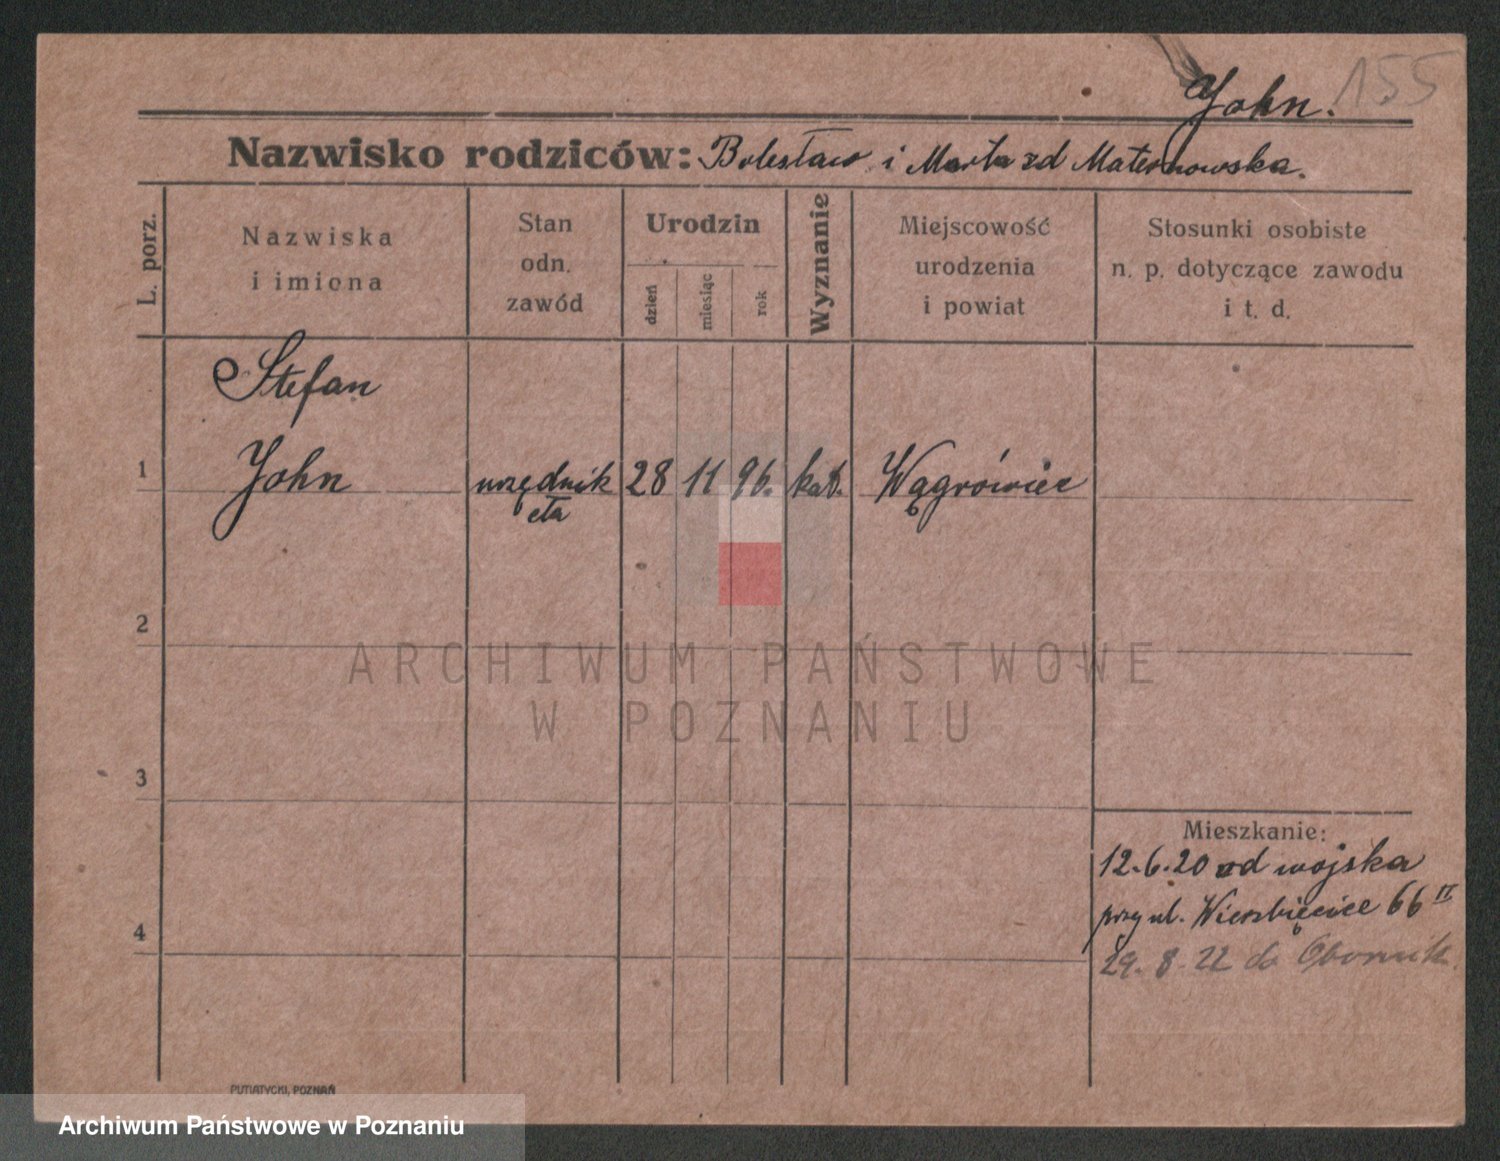 John. 155
Nazwisko rodziców: Bolesław i Marta zd Maternowska.
L. porz.
Nazwiska
i imiona
Stan
odn.
zawód
Urodzin
dzień
miesiąc
rok
Wyznanie
Miejscowość
urodzenia
i powiat
Stosunki osobiste
n. p. dotyczące zawodu
i t. d.
Stefan
1 John urzędnik 28 11 96. kat. Wągrówiec
cła
2
ARCHIWUM PAŃSTWOWE
W POZNANIU
3
Mieszkanie:
12.6.20 od wojska
przy ul. Wierzbięcice 66 II
4
29. 8. 22 do Obornik.
PUTIATYCKI, POZNAŃ
Archiwum Państwowe w Poznaniu